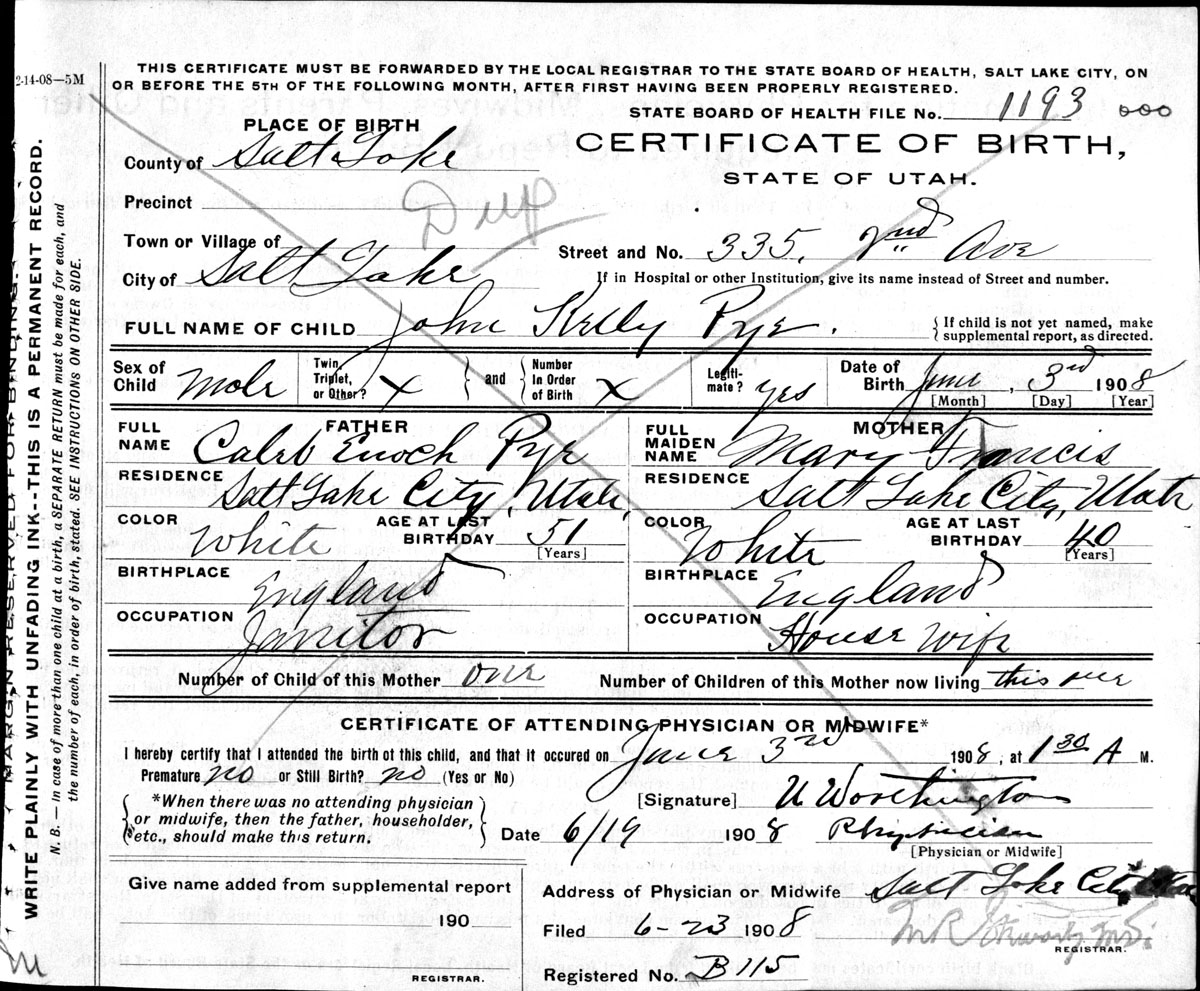 2-14-08—5M
THIS CERTIFICATE MUST BE FORWARDED BY THE LOCAL REGISTRAR TO THE STATE BOARD OF HEALTH, SALT LAKE CITY, ON
OR BEFORE THE 5TH OF THE FOLLOWING MONTH, AFTER FIRST HAVING BEEN PROPERLY REGISTERED.
STATE BOARD OF HEALTH FILE No. 1193 000
PLACE OF BIRTH
CERTIFICATE OF BIRTH,
STATE OF UTAH.
County of Salt Lake
Precinct
Dup
Town or Village of
Street and No. 335. 2nd Ave
City of Salt Lake
If in Hospital or other Institution, give its name instead of Street and number.
FULL NAME OF CHILD John Kelly Pye.
{ If child is not yet named, make
supplemental report, as directed.
Sex of Child Male
Twin, Triplet, or Other? X } and { Number In Order of Birth X
Legiti-mate? yes
Date of Birth June, 3rd 1908
[Month] [Day] [Year]
FATHER
FULL NAME Caleb Enoch Pye
RESIDENCE Salt Lake City, Utah,
COLOR White AGE AT LAST BIRTHDAY 51
[Years]
BIRTHPLACE England
OCCUPATION Janitor
MOTHER
FULL MAIDEN NAME Mary Francis
RESIDENCE Salt Lake City, Utah
COLOR White AGE AT LAST BIRTHDAY 40
[Years]
BIRTHPLACE England
OCCUPATION House Wife
Number of Child of this Mother one Number of Children of this Mother now living this one
CERTIFICATE OF ATTENDING PHYSICIAN OR MIDWIFE*
I hereby certify that I attended the birth of this child, and that it occured on June 3rd 1908, at 1 30 A M.
Premature no or Still Birth? no (Yes or No)
{ *When there was no attending physician
or midwife, then the father, householder,
etc., should make this return. }
[Signature] U Worthington
Date 6/19 1908 Physician
[Physician or Midwife]
Give name added from supplemental report
190
REGISTRAR.
Address of Physician or Midwife Salt Lake City
Filed 6-23 1908
REGISTRAR.
Registered No. B115
MARGIN RESERVED FOR BINDING.
WRITE PLAINLY WITH UNFADING INK--THIS IS A PERMANENT RECORD.
N. B. — In case of more than one child at a birth, a SEPARATE RETURN must be made for each, and
the number of each, in order of birth, stated. SEE INSTRUCTIONS ON OTHER SIDE.